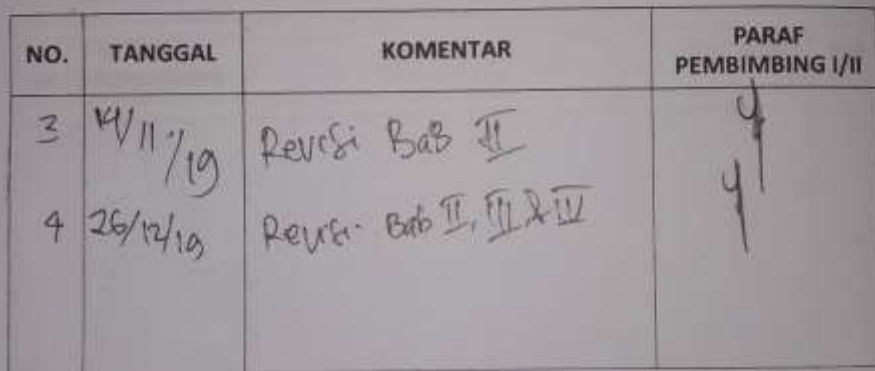 NO. TANGGAL KOMENTAR PARAF PEMBIMBING I/II
3 14/11/19 Revisi Bab II
4 26/12/19 Revisi Bab II, III & IV